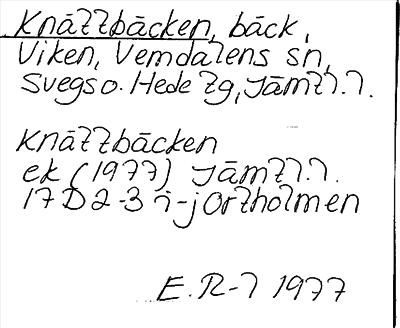 Knättbäcken, bäck,
Viken, Vemdalens sn,
Svegs o. Hede tg, Jämtl. l.
Knättbäcken
ek (1977) Jämtl. l.
17D2-3 i-j Ortholmen
E. R-l 1977